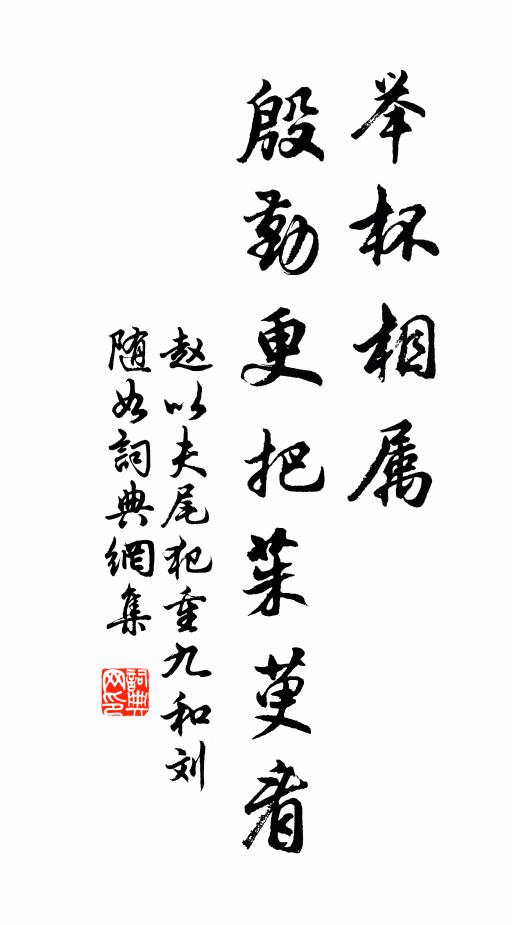 举杯相属
殷勤更把茱萸看
赵以夫尾犯重九和刘
随如詞典網集
詞典
网印